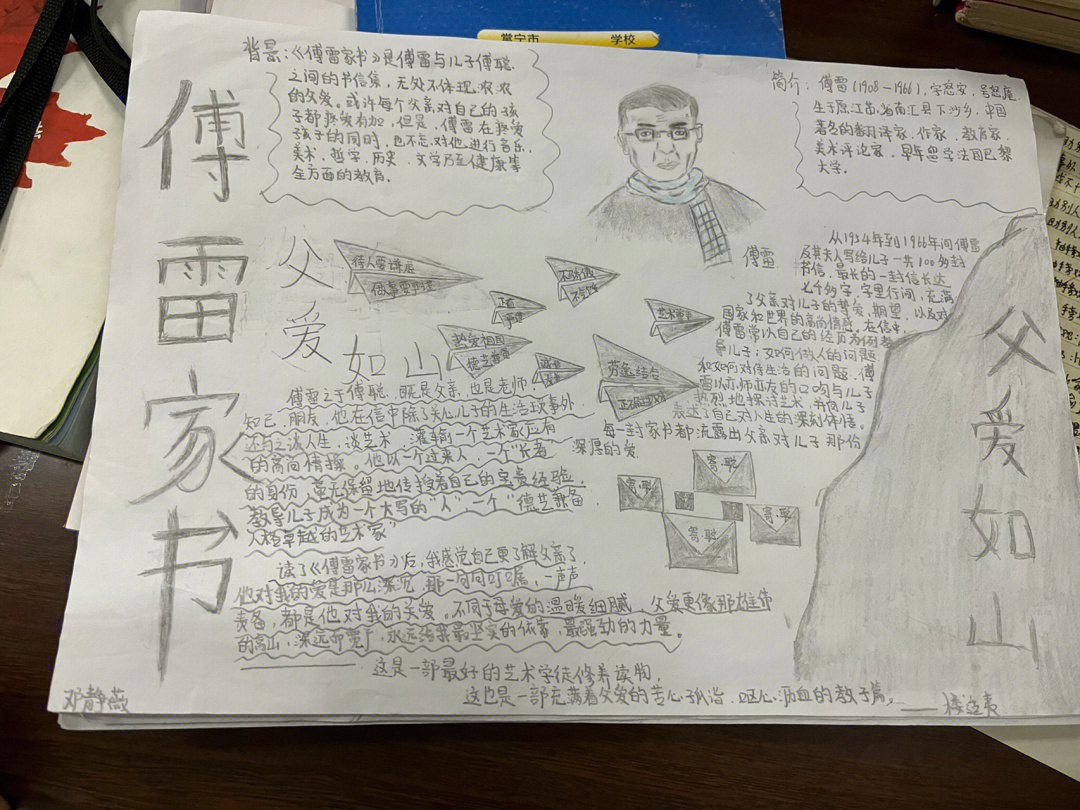 常宁市 学校
傅雷家书
背景:《傅雷家书》是傅雷与儿子傅聪
之间的书信集,无处不体现浓浓
的父爱。或许每个父亲对自己的孩
子都热爱有加,但是,傅雷在热爱
孩子的同时,也不忘对他进行音乐,
美术,哲学,历史,文学乃至健康等
全方面的教育.
简介:傅雷(1908-1966),字怒安,号怒庵,
生于原江苏省南汇县下沙乡,中国
著名的翻译家,作家,教育家,
美术评论家,早年留学法国巴黎
大学.
傅雷
父爱如山
待人要谦虚
做事要严谨
热爱祖国
劳逸结合
从1954年到1966年间傅雷
及其夫人写给儿子一共100多封
书信,最长的一封信长达
七千多字,字里行间,充满
了父亲对儿子的挚爱,期望,以及对
国家和世界的高尚情感,在信中,
傅雷常以自己的经历为例教
导儿子,如何做人的问题
和如何对待生活的问题.傅
雷以亦师亦友的口吻与儿子
热烈地探讨艺术,并向儿子
表达了自己对人生的深刻体悟。
每一封家书都流露出父亲对儿子那份
深厚的爱.
傅雷之于傅聪,既是父亲,也是老师,
知己,朋友,他在信中除了关心儿子的生活琐事外
还与之谈人生,谈艺术,灌输一个艺术家应有
的高尚情操。他以一个过来人,一个"长者
的身份,毫无保留地传授着自己的宝贵经验.
教导儿子成为一个大写的"人",一个"德艺兼备
人格卓越的艺术家"
寄·聪
寄·聪
寄·聪
寄·聪
读了《傅雷家书》后,我感觉自己更了解父亲了
他对我的爱是那么深沉,那一句句叮嘱,一声声
责备,都是他对我的关爱。不同于母爱的温暖细腻,父爱更像那雄伟
的高山,深远而宽广,永远给我最坚实的依靠,最强劲的力量。
这是一部最好的艺术学徒修养读物,
这也是一部充满着父爱的苦心孤诣、呕心沥血的教子篇。——楼适夷
父爱如山
邓静薇